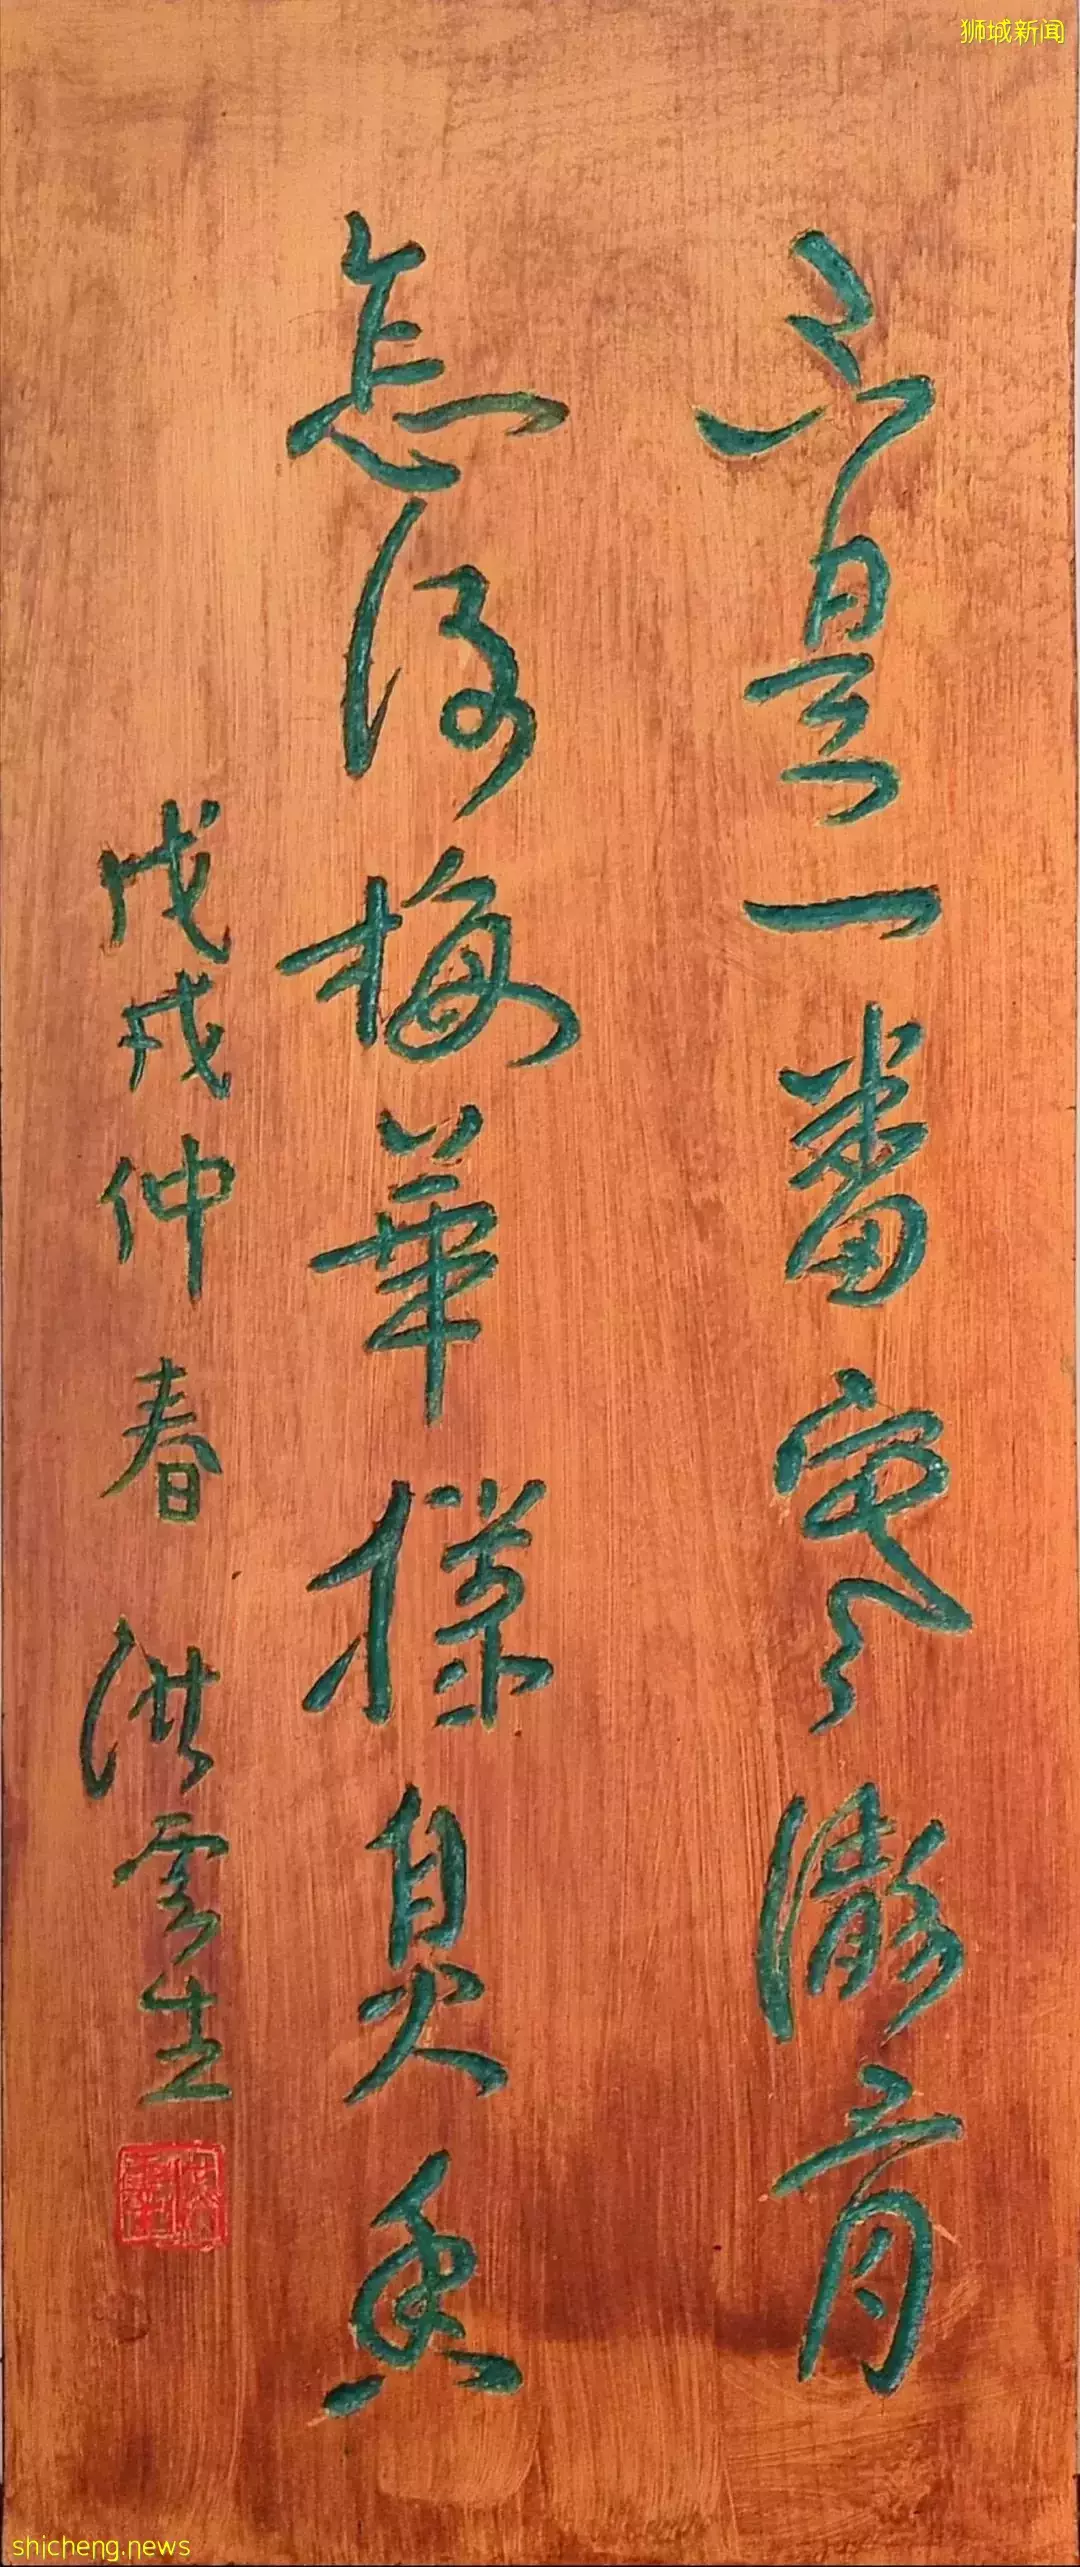 狮城新闻
不是一番寒澈骨
怎得梅華撲鼻香
戊戌仲春 洪雲生
shicheng.news